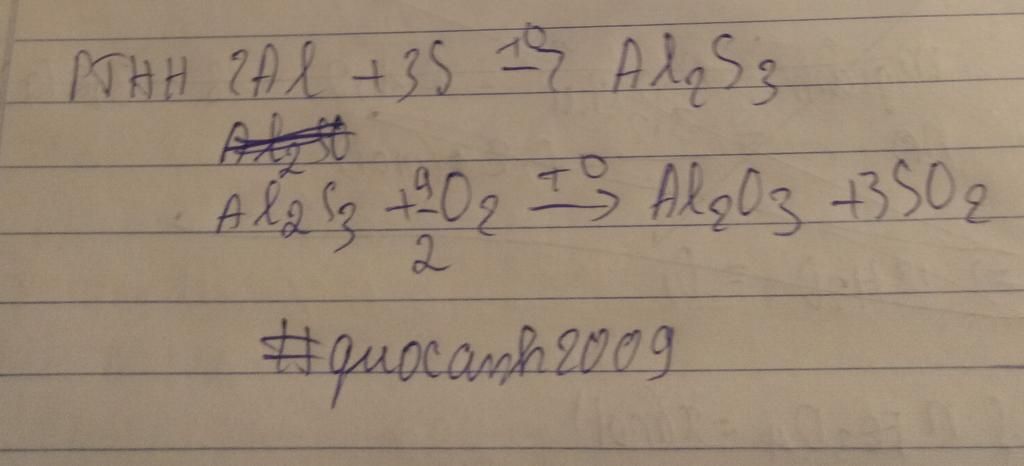 PTHH 2Al + 3S t0→ Al2S3
Al2S3 + 9/2 O2 t0→ Al2O3 + 3SO2
#quocanh2009